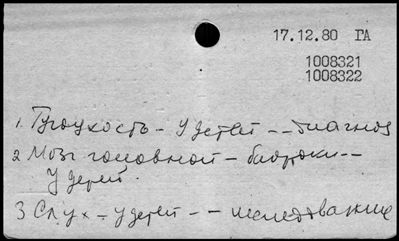 17.12.80 ГА
1008321
1008322
1. Тугоухость – у детей -- диагноз
2 Мозг головной – биотоки --
у детей.
3 Слух – у детей -- исследование